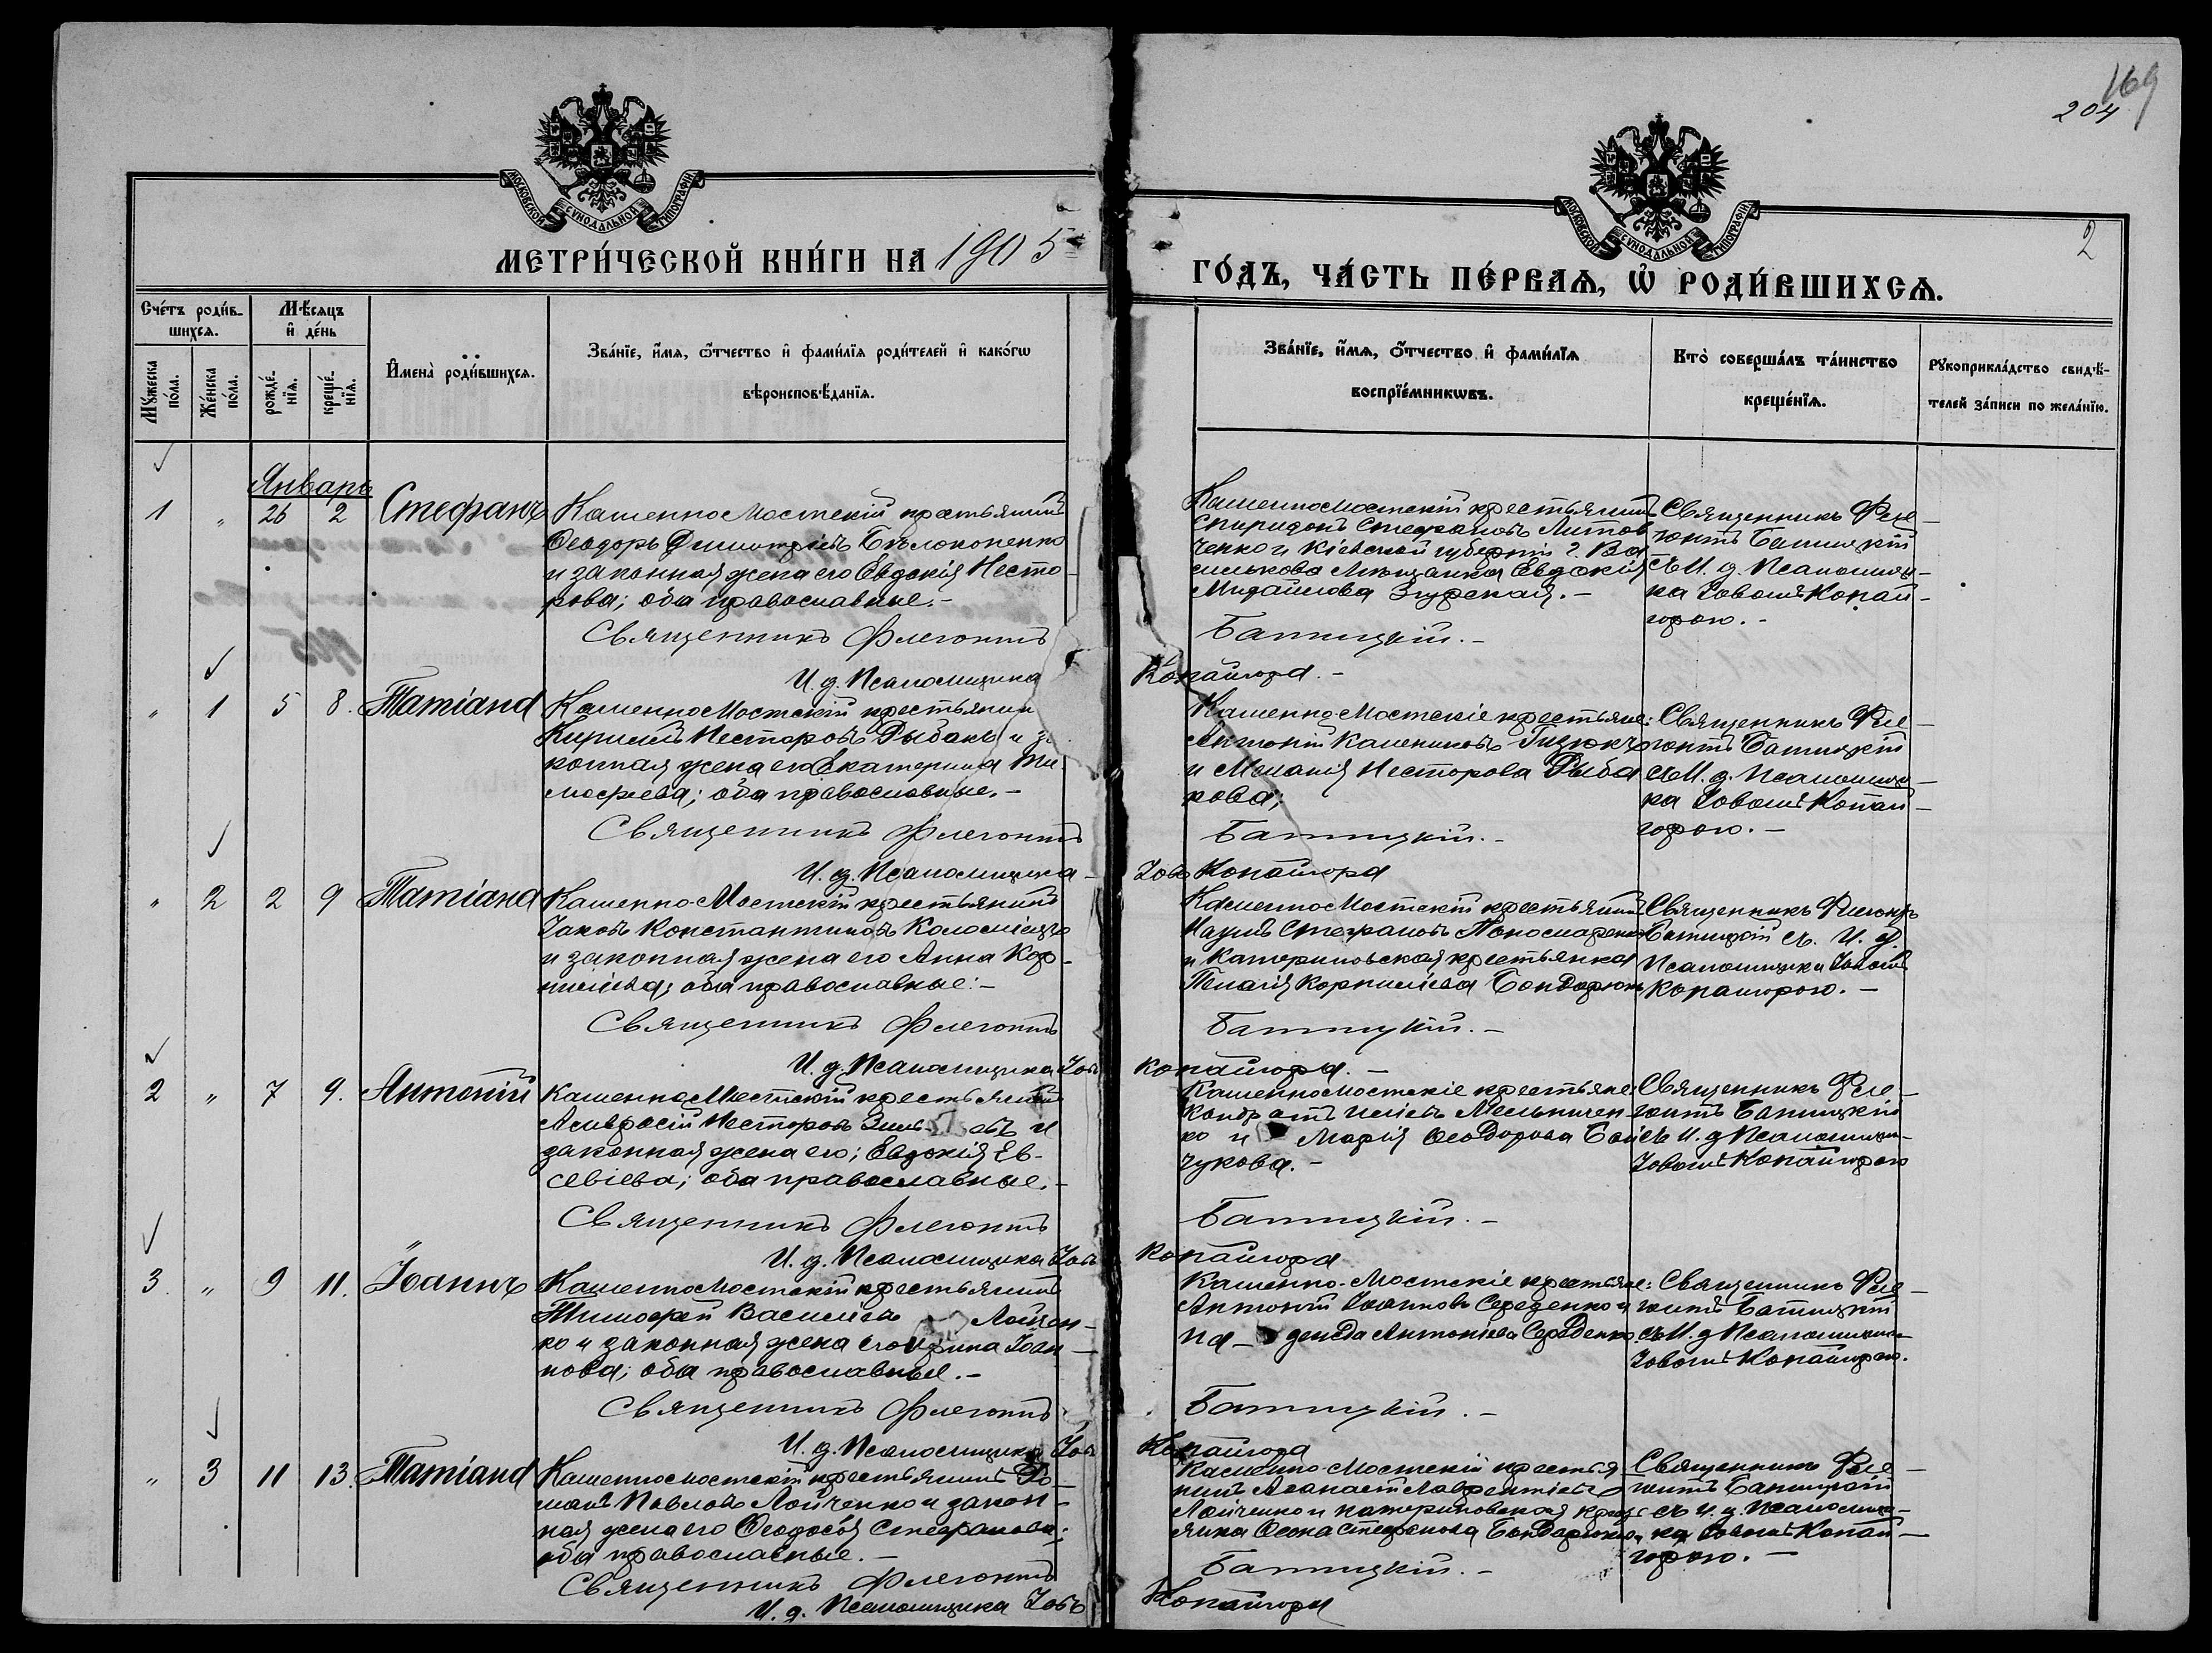 169
204
2
МОСКОВСКОЙ СУНОДАЛЬНОЙ ТИПОГРАФІИ
МОСКОВСКОЙ СУНОДАЛЬНОЙ ТИПОГРАФІИ
МЕТРИ́ЧЕСКОЙ КНИ́ГИ НА 1905
ГО́ДЪ, ЧА́СТЬ ПЕ́РВАѦ, Ѡ҆ РОДИ́ВШИХСѦ.
Сче́тъ роди́в-
шихсѧ.
Мѣ́сѧцъ
и҆ де́нь
Мꙋ́жеска
по́ла.
Же́нска
по́ла.
рожде́-
нїѧ.
креще́-
нїѧ.
И҆мена̀ роди́вшихсѧ.
Зва́нїе, и҆́мѧ, ѻ҆́тчество и҆ фами́лїѧ роди́телей и҆ како́гѡ
вѣроисповѣ́данїѧ.
Зва́нїе, и҆́мѧ, ѻ҆́тчество и҆ фами́лїѧ
воспрїе́мникѡвъ.
Кто̀ соверша́лъ та́инство
креще́нїѧ.
Рꙋкоприкла́дство свидѣ́-
телей за́писи по жела́нїю.
Январь
1 " 26 2 Стефанъ
Каменно Мостскій крестьянинъ
Ѳеодоръ Димитріевъ Бѣлоконенко
и законная жена его Евдокія Несто-
рова; оба православные.-
Священникъ Флегонтъ
И. д. Псаломщика
Каменномостскій крестьянинъ
Спиридонъ Стефановъ Литов
ченко и Кіевской губерніи г. Ва
силькова мѣщанка Евдокія
Михайлова Згурская.-
Батицкій.-
Копайгора.-
Священникъ Фле-
гонтъ Батицкій
съ И. д. Псаломщи-
ка Іовомъ Копай-
горою.-
" 1 5 8. Татіана
Каменно Мостскій крестьянин
Кириллъ Несторовъ Рыбакъ и за
конная жена его Екатерина Ти
мофеева; оба православные.-
Священникъ Флегонтъ
И. д. Псаломщика
Каменно Мостскіе крестьяне:
Антоній Каленниковъ
и Меланія Несторова Рыба
кова;
Батицкій.-
Іовъ Копайгора
Священникъ Фле-
гонтъ Батицкій
съ И. д. Псаломщи-
ка Іовомъ Копай-
горою.-
" 2 2 9 Татіана
Каменно Мостскій крестьянинъ
Іаковъ Константиновъ Коломіецъ
и законная жена его Анна Кор-
ниліева; оба православные.-
Священникъ Флегонтъ
И. д. Псаломщика Іовъ
Каменно Мостскій крестьянинъ
Наумъ Стефановъ Пономаренко
и Катериновская крестьянка
Корниліева Бондарюкъ
Батицкій.-
Копайгора.-
Священникъ Флегонтъ
Батицкій съ И. д.
Псаломщика Іовомъ
Копайгорою.-
2 " 7 9. Антоній
Каменно Мостскій крестьянинъ
Амвросій Несторовъ и
законная жена его; Евдокія Ев-
севіева; оба православные.-
Священникъ Флегонтъ
И. д. Псаломщика Іовъ
Каменно Мостскіе крестьяне:
Кондратъ Иліевъ Мельничен-
ко и Марія Ѳеодорова Бой
чукова.-
Батицкій.-
Копайгора
Священникъ Фле-
гонтъ Батицкій
съ И. д Псаломщи-
Іовомъ Копайгорою
3. " 9 11. Іоаннъ
Каменно Мостскій крестьянинъ
Тимофей Васильевъ Лойчен-
ко и законная жена его Ирина Іоан-
нова; оба православные.-
Священникъ Флегонтъ
И. д. Псаломщика Іовъ
Каменно-Мостскіе крестьяне:
Антоній Іоанновъ Середенко и
На- дежда Антоніева Середенко.
Батицкій.-
Копайгора
Священникъ Фле-
гонтъ Батицкій
съ И. д Псаломщика
Іовомъ Копайгорою.
" 3 11 13. Татіана
Каменно мостскій крестьянинъ Ро-
манъ Павловъ Лойченко и закон-
ная жена его Ѳеодосія Стефанова;
оба православные.-
Священникъ Флегонтъ
И. д. Псаломщика Іовъ
Каменно Мостскій крестья
нинъ Аѳанасій Лаврентіевъ
Лойченко и катериновская крес
янка Стефанова Бондарюкова
Батицкій.-
Копайгора
Священникъ Фле-
гонтъ Батицкій
съ И. д. Псаломщи-
ка Іовомъ Копай-
горою.-